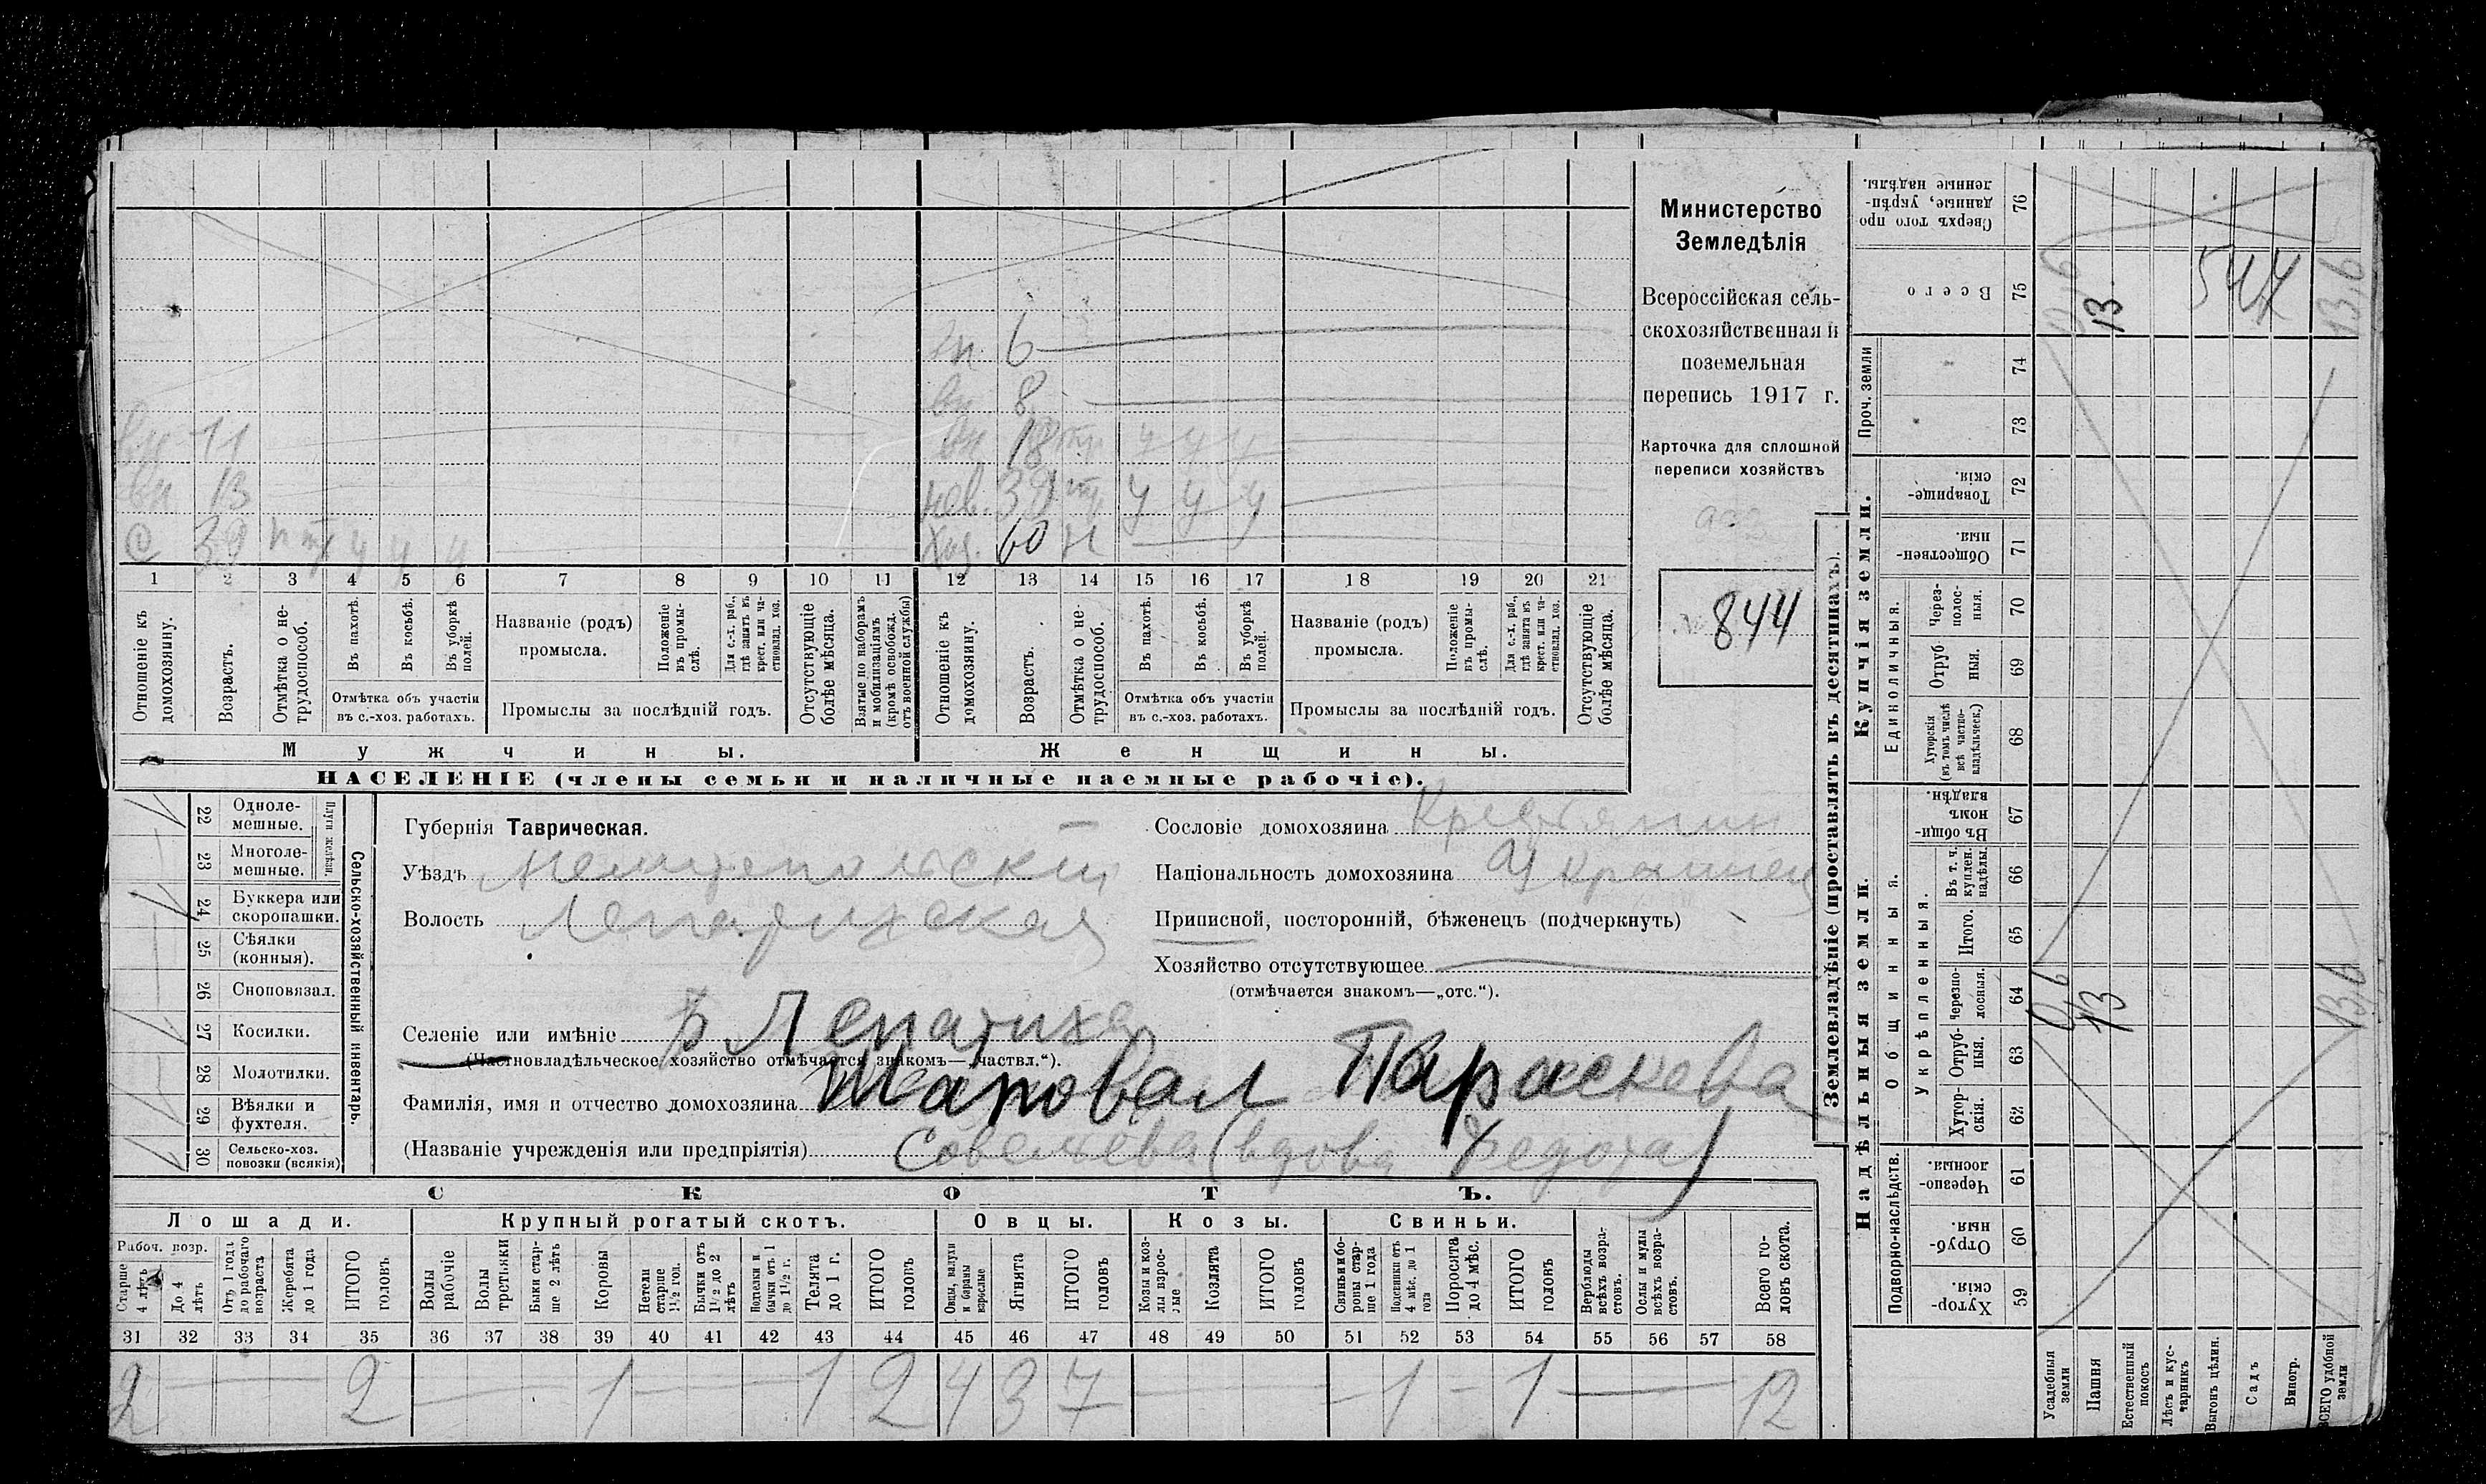 Министерство
Земледѣлія
Всероссійская сель-
скохозяйственная и
поземельная
перепись 1917 г.
Карточка для сплошной
переписи хозяйствъ
844
6
8
вн 11
вн 18 ч ч ч
вн 13
нев. 39 ч ч ч
39 ч ч ч
хоз. 60 н
1 2 3 4 5 6 7 8 9 10 11 12 13 14 15 16 17 18 19 20 21
Отношеніе къ домохозяину.
Возрастъ.
Отмѣтка о не-трудоспособ.
Въ пахотѣ.
Въ косьбѣ.
Въ уборкѣ полей.
Отмѣтка объ участіи
въ с.-хоз. работахъ.
Названіе (родъ)
промысла.
Положеніе въ промы-слѣ.
Для с.-х. раб., гдѣ занятъ въ крест. или ча-стновлад. хоз.
Промыслы за послѣдній годъ.
Отсутствующіе болѣе мѣсяца.
Взятые по наборамъ и мобилизаціямъ (кромѣ освобожд. отъ военной службы)
Отношеніе къ домохозяину.
Возрастъ.
Отмѣтка о не-трудоспособ.
Въ пахотѣ.
Въ косьбѣ.
Въ уборкѣ полей.
Отмѣтка объ участіи
въ с.-хоз. работахъ.
Названіе (родъ)
промысла.
Положеніе въ промы-слѣ.
Для с.-х. раб., гдѣ занята въ крест. или ча-стновлад. хоз.
Промыслы за послѣдній годъ.
Отсутствующіе болѣе мѣсяца.
Мужчины.
Женщины.
НАСЕЛЕНІЕ (члены семьи и наличные наемные рабочіе).
Сельско-хозяйственный инвентарь.
Плуги желѣзн.
22 Одноле-мешные.
23 Многоле-мешные.
24 Буккера или скоропашки.
25 Сѣялки (конныя).
26 Сноповязал.
27 Косилки.
28 Молотилки.
29 Вѣялки и фухтеля.
30 Сельско-хоз. повозки (всякія)
Губернія Таврическая.
Уѣздъ Мелитопольскій
Волость Лепатихская
Селеніе или имѣніе Б Лепатиха
(Частновладѣльческое хозяйство отмѣчается знакомъ—„частвл.“).
Фамилія, имя и отчество домохозяина Шаповал Параскева
(Названіе учрежденія или предпріятія) Савельева (вдова Федота)
Сословіе домохозяина Крестянин
Національность домохозяина Украинец
Приписной, посторонній, бѣженецъ (подчеркнуть)
Хозяйство отсутствующее
(отмѣчается знакомъ—„отс.“).
СКОТЪ.
Лошади.
Рабоч. возр.
Старше 4 лѣтъ
До 4 лѣтъ
Отъ 1 года до рабочаго возраста
Жеребята до 1 года
ИТОГО головъ
Крупный рогатый скотъ.
Волы рабочіе
Волы третьяки
Быки стар-ше 2 лѣтъ
Коровы
Нетели старше 1½ год.
Бычки отъ 1½ до 2 лѣтъ
Подтелки и бычки отъ 1 до 1½ г.
Телята до 1 г.
ИТОГО головъ
Овцы.
Овцы, валухи и бараны взрослые
Ягнята
ИТОГО головъ
Козы.
Козы и коз-лы взрос-лые
Козлята
ИТОГО головъ
Свиньи.
Свиньи и бо-ровы стар-ше 1 года
Подсвинки отъ 4 мѣс. до 1 года
Поросята до 4 мѣс.
ИТОГО головъ
Верблюды всѣхъ возра-стовъ.
Ослы и мулы всѣхъ возра-стовъ.
Всего го-ловъ скота.
31 32 33 34 35 36 37 38 39 40 41 42 43 44 45 46 47 48 49 50 51 52 53 54 55 56 57 58
2 — — 2 — 1 — 1 2 4 3 7 — — 1 — 1 — 12
Землевладѣніе (проставлять въ десятинахъ).
Купчія земли.
Надѣльныя земли.
Сверхъ того про данные, укрѣп-ленные надѣлы. 76
Всего 75
0,6 13 544 13,6
Проч. земли
74
73
Товарище-скія. 72
Обществен-ныя. 71
Единоличныя.
Через-полос-ныя. 70
Отруб ныя. 69
Хуторскія (въ томъ числѣ всѣ частно-владѣльческ.) 68
Общинныя.
Въ общин номъ владѣн. 67
Укрѣпленныя.
Въ т. ч. куплен. надѣлы. 66
Итого. 65
Черезпо-лосныя. 64
0,6 13 13,6
Отруб-ныя. 63
Хутор-скія. 62
Подворно-наслѣдств.
Черезпо-лосныя. 61
Отруб-ныя. 60
Хутор-скія. 59
Усадебныя земли
Пашня
Естественный покосъ
Лѣсъ и кус-тарникъ
Выгонъ цѣлин.
Садъ
Виногр.
ВСЕГО удобной земли